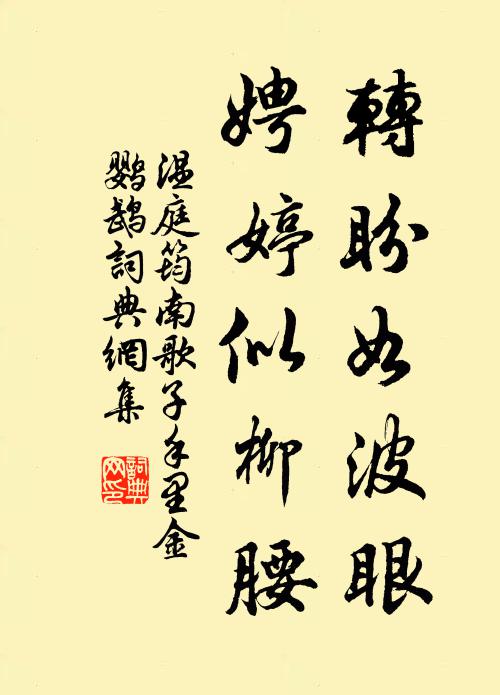 轉盼如波眼
娉婷似柳腰
溫庭筠南歌子手里金
鸚鵡詞典網集
詞典
网印